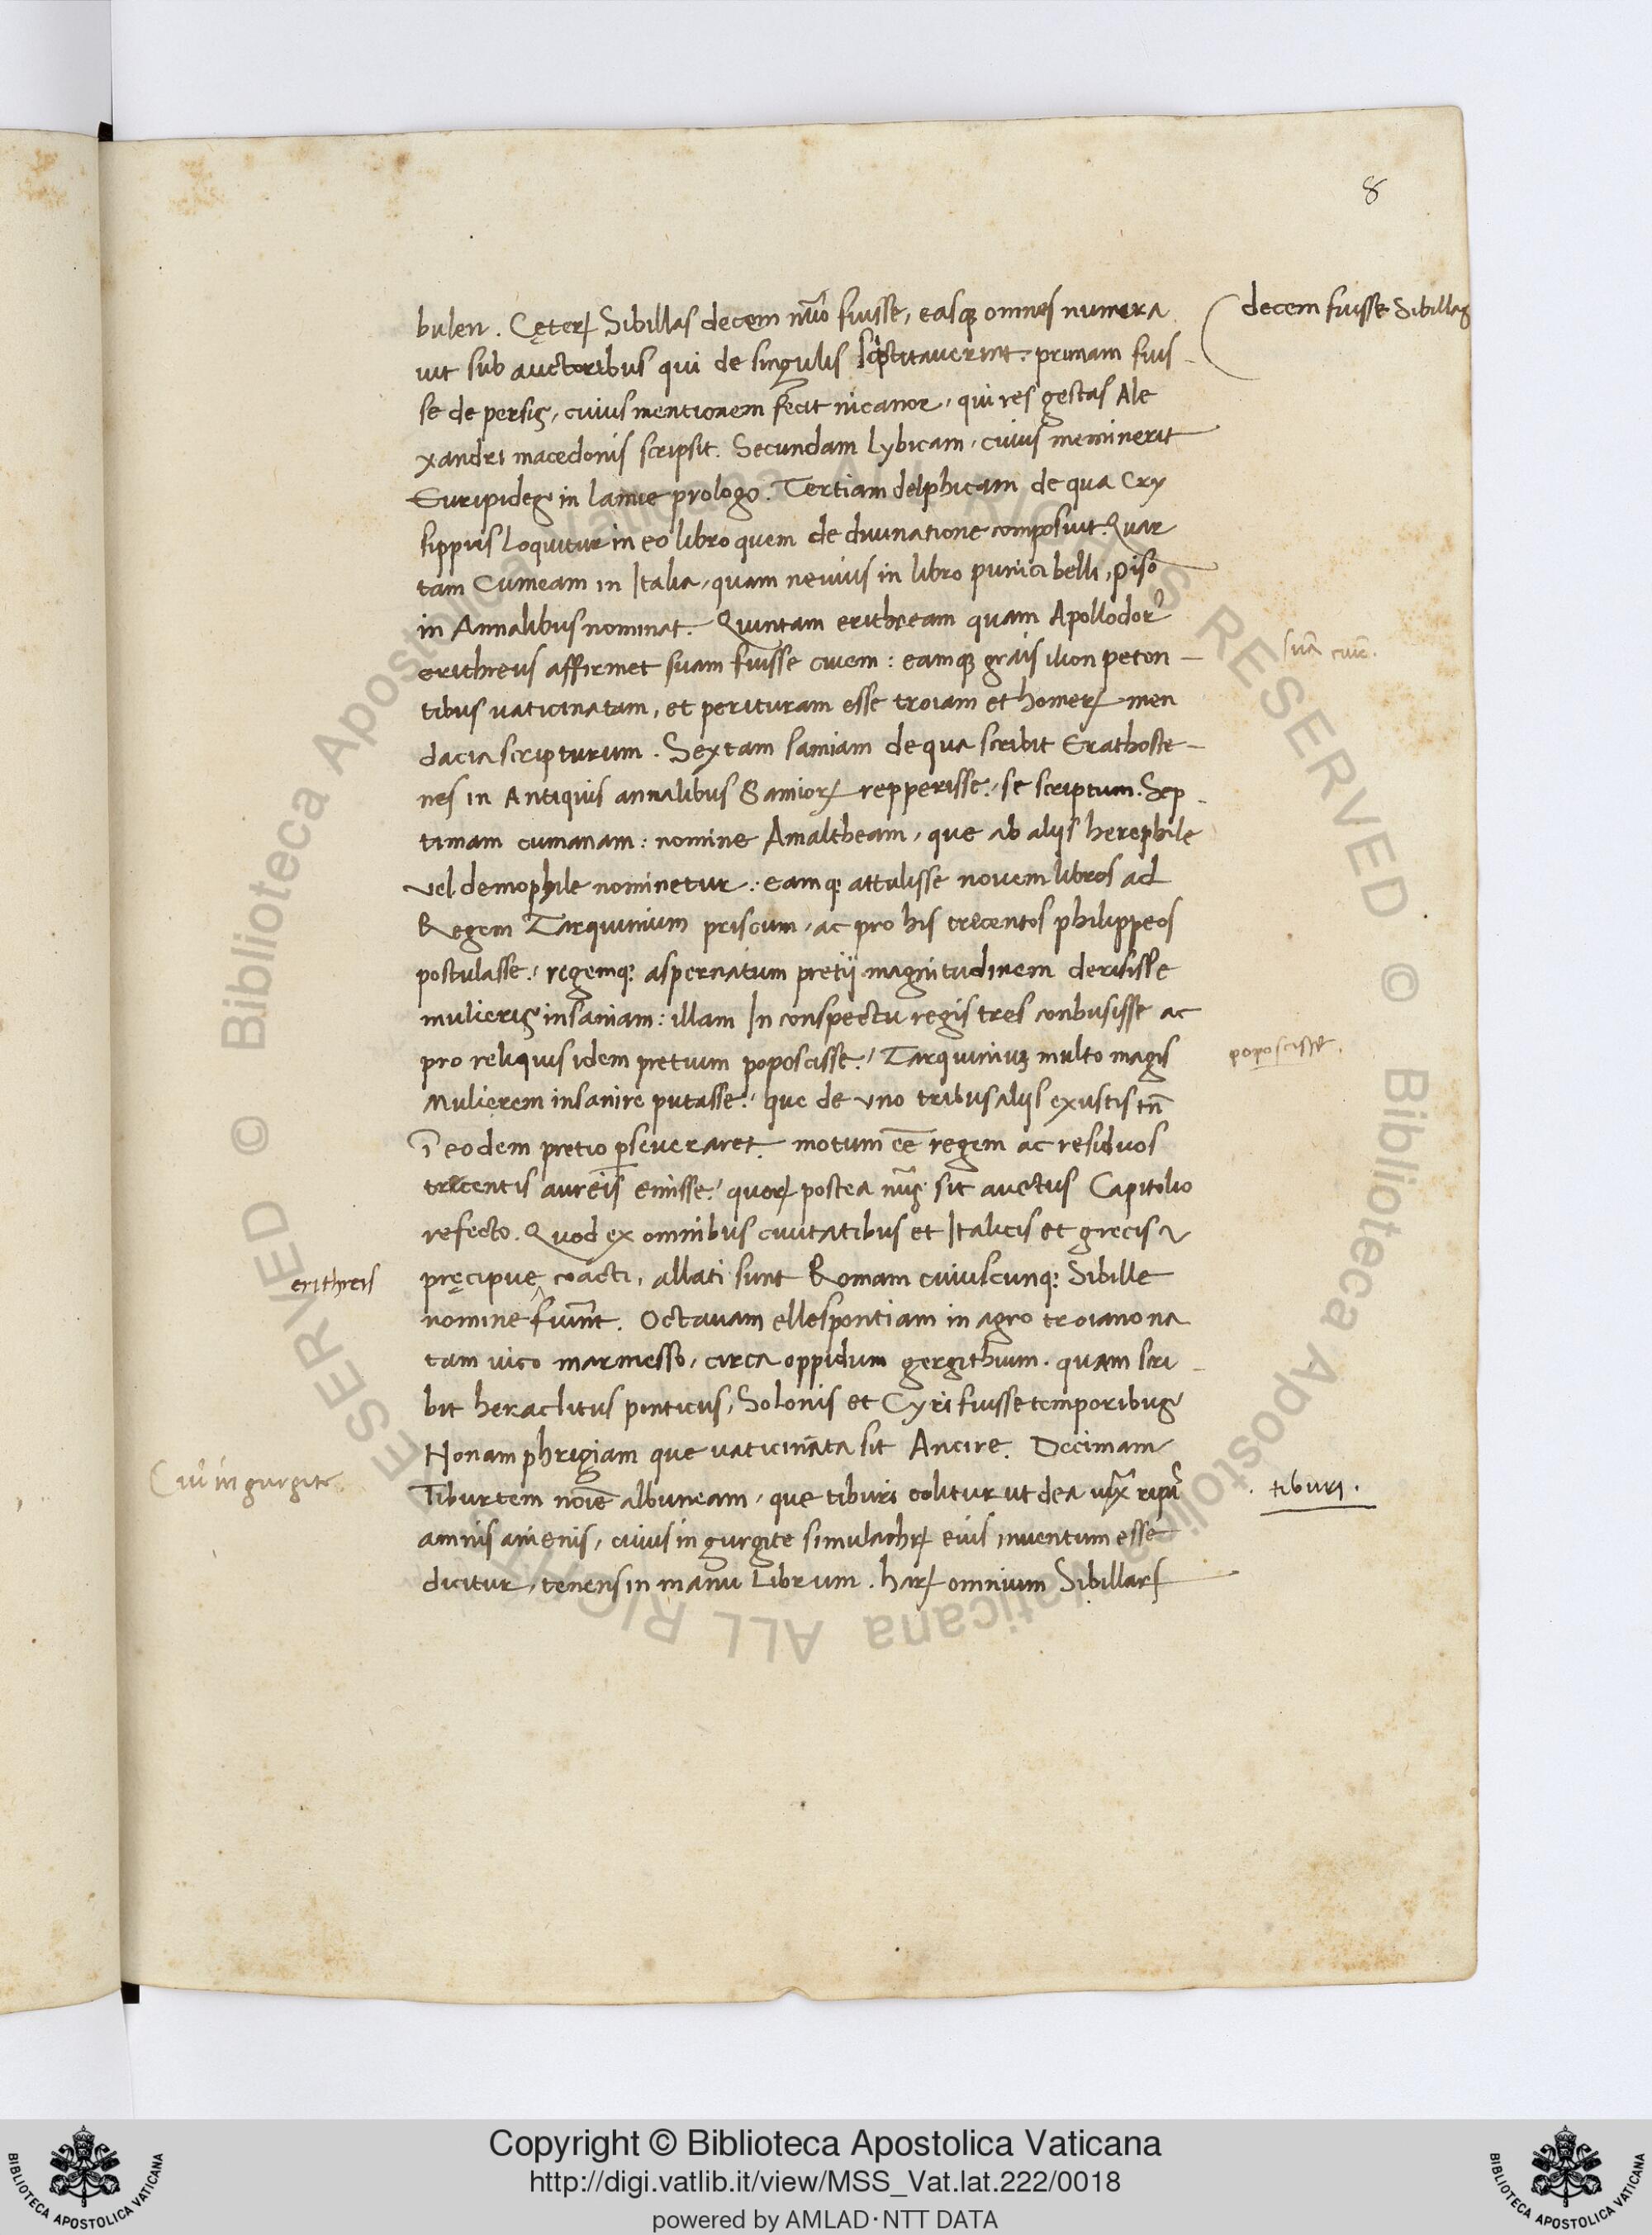 8
bulen. Cęterꝝ Sibillas decem nūo fuisse, easqꝫ omnes numera
uit sub auctoribus qui de singulis scriptitauerint. primam fuis-
se de persis, cuius mentionem fecit nicanor, qui res gestas Ale
xandri macedonis scripsit. Secundam lybicam, cuius meminerit
Euripides in lamie prologo. Tertiam delphicam de qua Cry
sippus loquitur in eo libro quem de diuinatione composuit. Quar
tam Cumeam in Italia, quam neuius in libro punici belli, Piso
in Annalibus nominat. Quintam erithream quam Apollodorꝰ
erithreus affirmet suam fuisse ciuem: eamqꝫ grais ilion peten-
tibus uaticinatam, et perituram esse troiam et homerꝝ men
dacia scripturum. Sextam samiam de qua scribit Erathoste-
nes in Antiquis annalibus Samiorꝝ repperisse se scriptum. Sep-
timam cumanam: nomine Amaltheam, que ab alijs herophile
vel demophile nominetur: eamqꝫ attulisse nouem libros ad
Regem Tarquinium priscum, ac pro his trecentos philippeos
postulasse, regemqꝫ aspernatum pretij magnitudinem derisisse
mulieris insaniam: illam In conspectu regis tres conbusisse ac
pro reliquis idem pretium poposcisse, Tarquiniuꝫ multo magis
Mulierem insanire putasse, que de vno tribus alijs exustis tñ
ī eodem pretio ꝑseueraret. motum eē regem ac residuos
trecentis aureis emisse, quorꝝ postea nūs sit auctus Capitolio
refecto. Quod ex omnibus ciuitatibus et Italicis et grecis
pręcipue coacti, allati sunt Romam cuiuscunqꝫ Sibille
nomine fuerint. Octauam ellespontiam in agro troiano na
tam uico marmesso, circa oppidum gergithium. quam scri-
bit heraclitus ponticus, Solonis et Cyri fuisse temporibus
Nonam phrigiam que uaticinata sit Ancire. Decimam
Tiburtem noīe albuneam, que tiburi colitur ut dea
amnis anienis, cuius in gurgite simulachrꝝ eius inuentum esse
dicitur, tenens in manu Librum. harꝝ omnium Sibillarꝝ
decem fuisse Sibillas
suā ciuē.
poposcisse.
erithreis
tiburi.
in gurgite
Copyright © Biblioteca Apostolica Vaticana
http://digi.vatlib.it/view/MSS_Vat.lat.222/0018
powered by AMLAD·NTT DATA